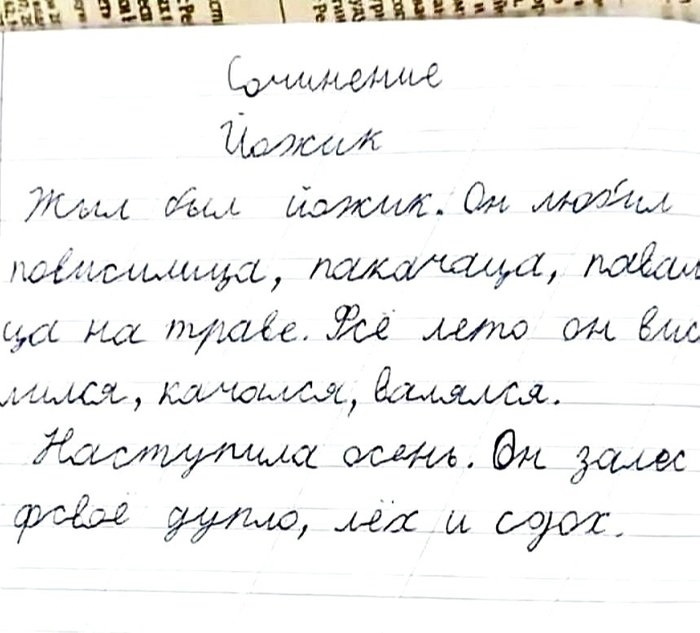 Сочинение
Йожик
Жыл был йожик. Он любил
повисилица, пакачаца, павал
ца на траве. Фсё лето он вис
лился, качался, валялся.
Наступила осень. Он залес
фсвоё дупло, лёх и сдох.